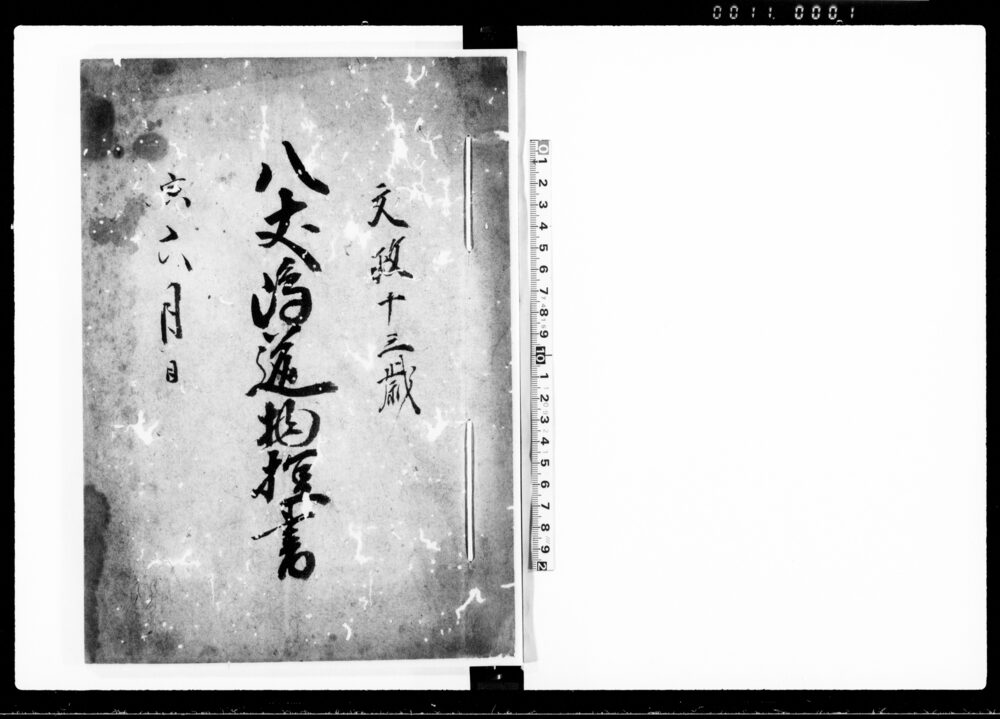 0011 0001
文政十三歳
八丈嶋物控書
寅六月日
0 1 2 3 4 5 6 7 8 9 10 1 2 3 4 5 6 7 8 9 2